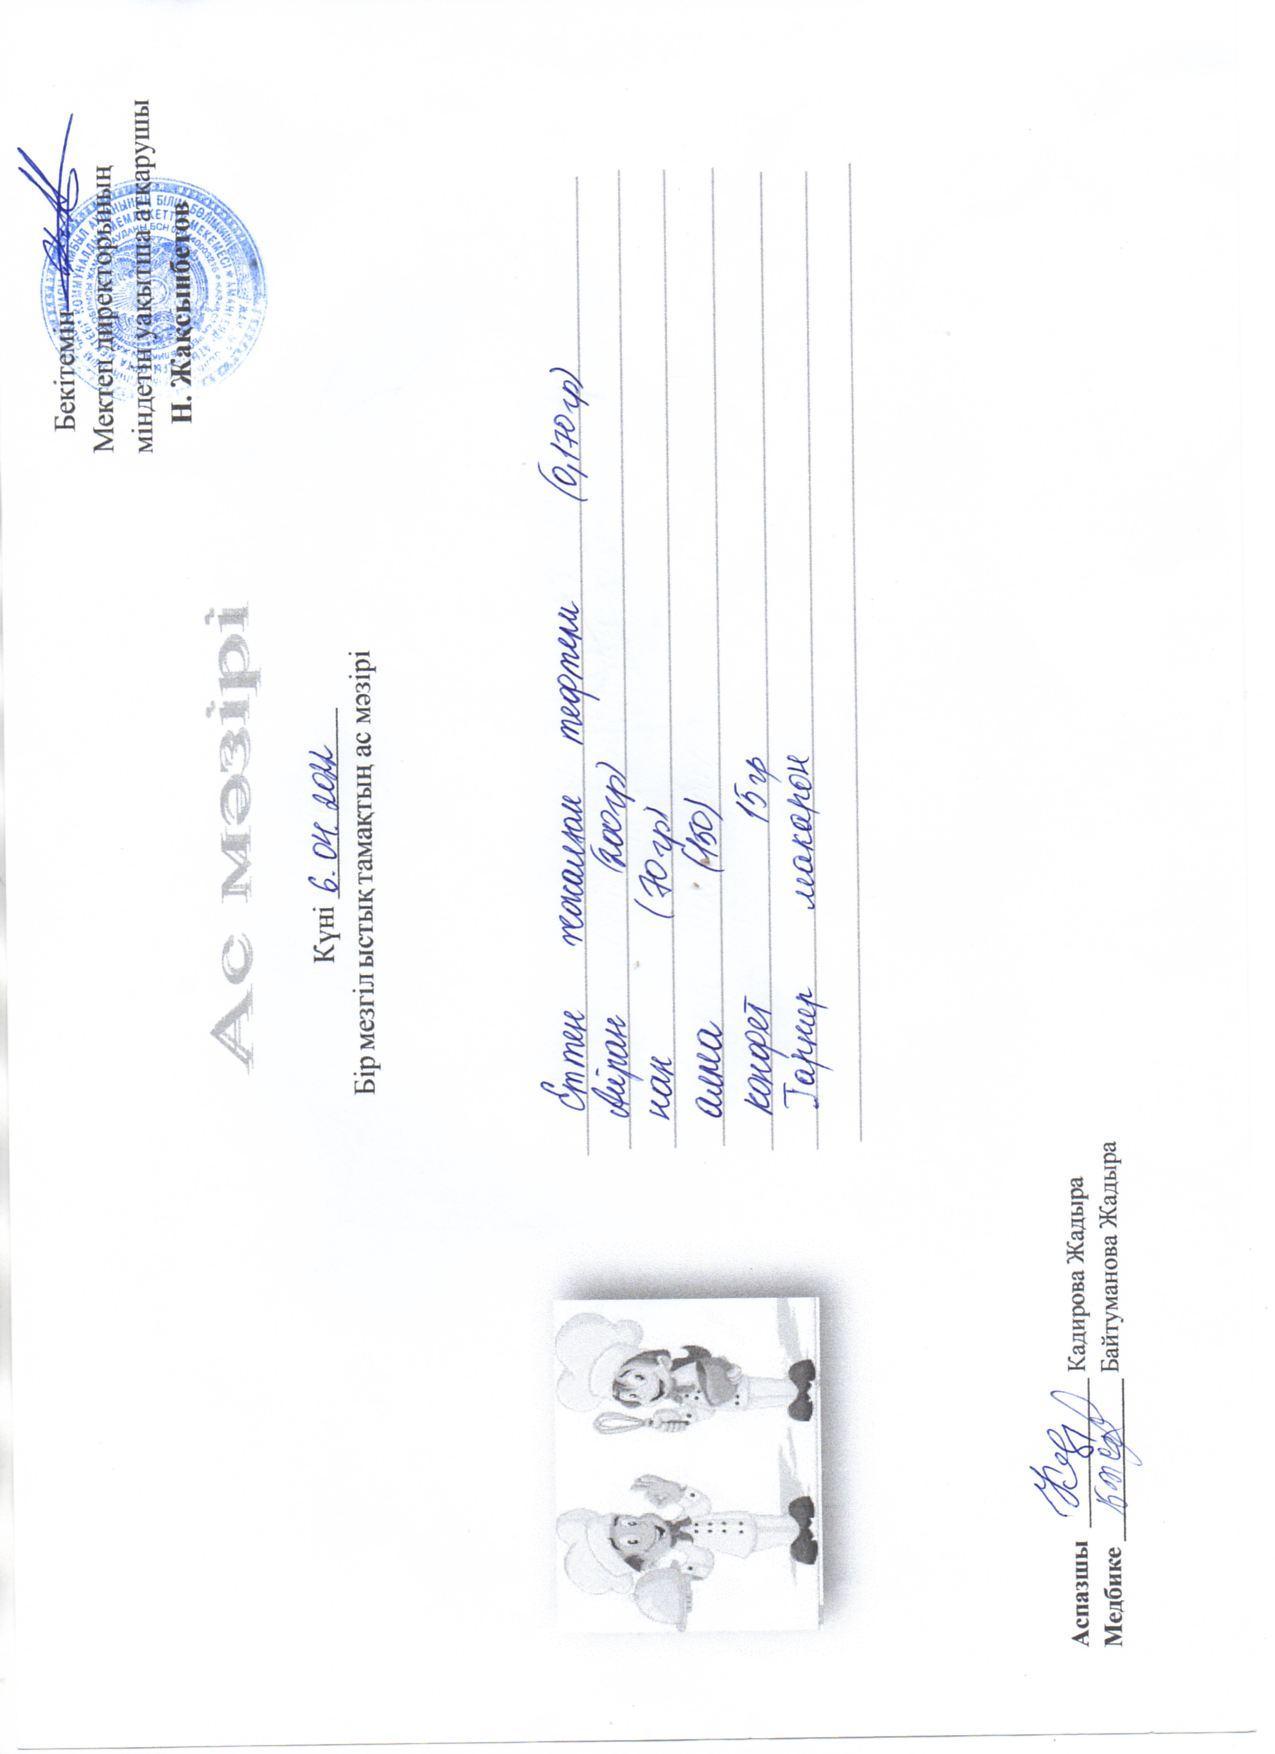 Бекітемін
Мектеп директорының
міндетін уақытша атқарушы
Н. Жақсынбетов
Ас мәзірі
Күні 6.04.2022
Бір мезгіл ыстық тамақтың ас мәзірі
Еттен жасалған тефтели (0,170гр)
Айран (200гр)
нан (70гр)
алма (150)
конфет 15гр
Гарнир макарон
Аспазшы Кадирова Жадыра
Медбике Байтуманова Жадыра